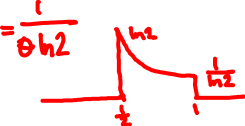 = 1/(θ ln2)
ln2
1/ln2
1/2
1